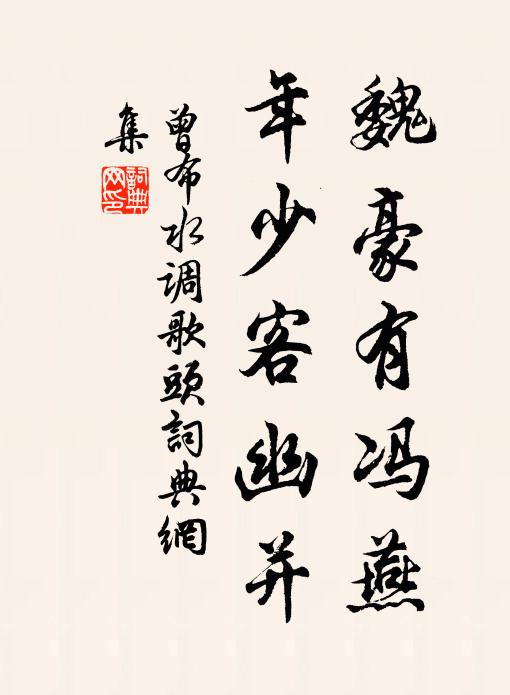 魏豪有冯燕
年少客幽并
曾布水调歌頭詞典網
集
詞典
网印